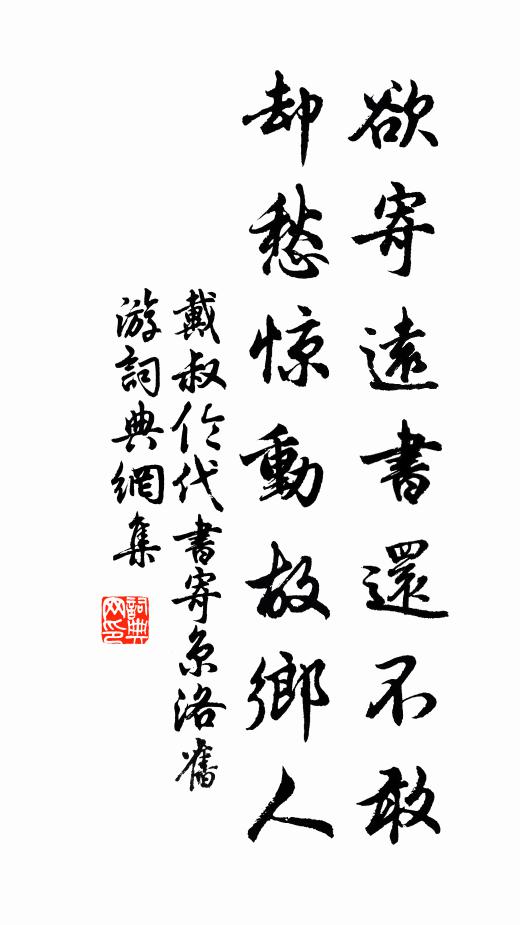 欲寄遠書還不敢
却愁惊動故鄉人
戴叔伦代書寄京洛舊
游詞典網集
詞典
网印